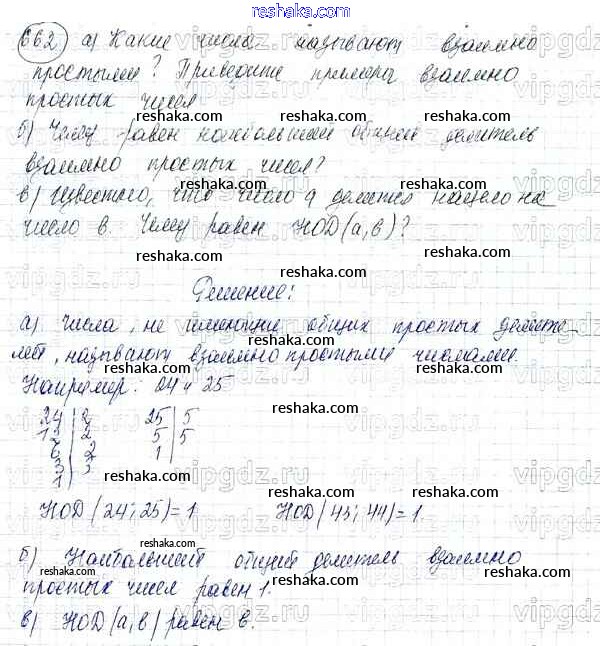 662. а) Какие числа называют взаимно
простыми? Приведите примеры взаимно
простых чисел
б) Чему равен наибольший общий делитель
взаимно простых чисел?
в) Известно, что число а делится нацело на
число в. Чему равен НОД(а,в)?
Решение:
а) Числа, не имеющие общих простых делите-
лей, называют взаимно простыми числами.
Например: 24 и 25
24 | 2 25 | 5
12 | 2 5 | 5
6 | 2 1 |
3 | 3
1 |
НОД(24; 25)=1 НОД(45; 44)=1
б) Наибольший общий делитель взаимно
простых чисел равен 1.
в) НОД(а,в) равен в.
reshaka.ru
vipgdz.ru